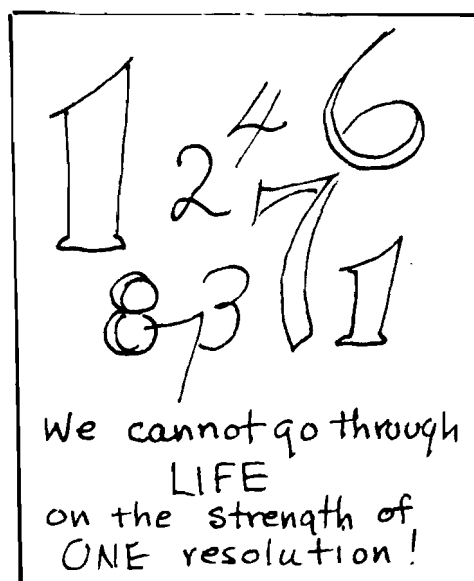 1 2 4 6
8 7 3 7 1
We cannot go through
LIFE
on the strength of
ONE resolution!